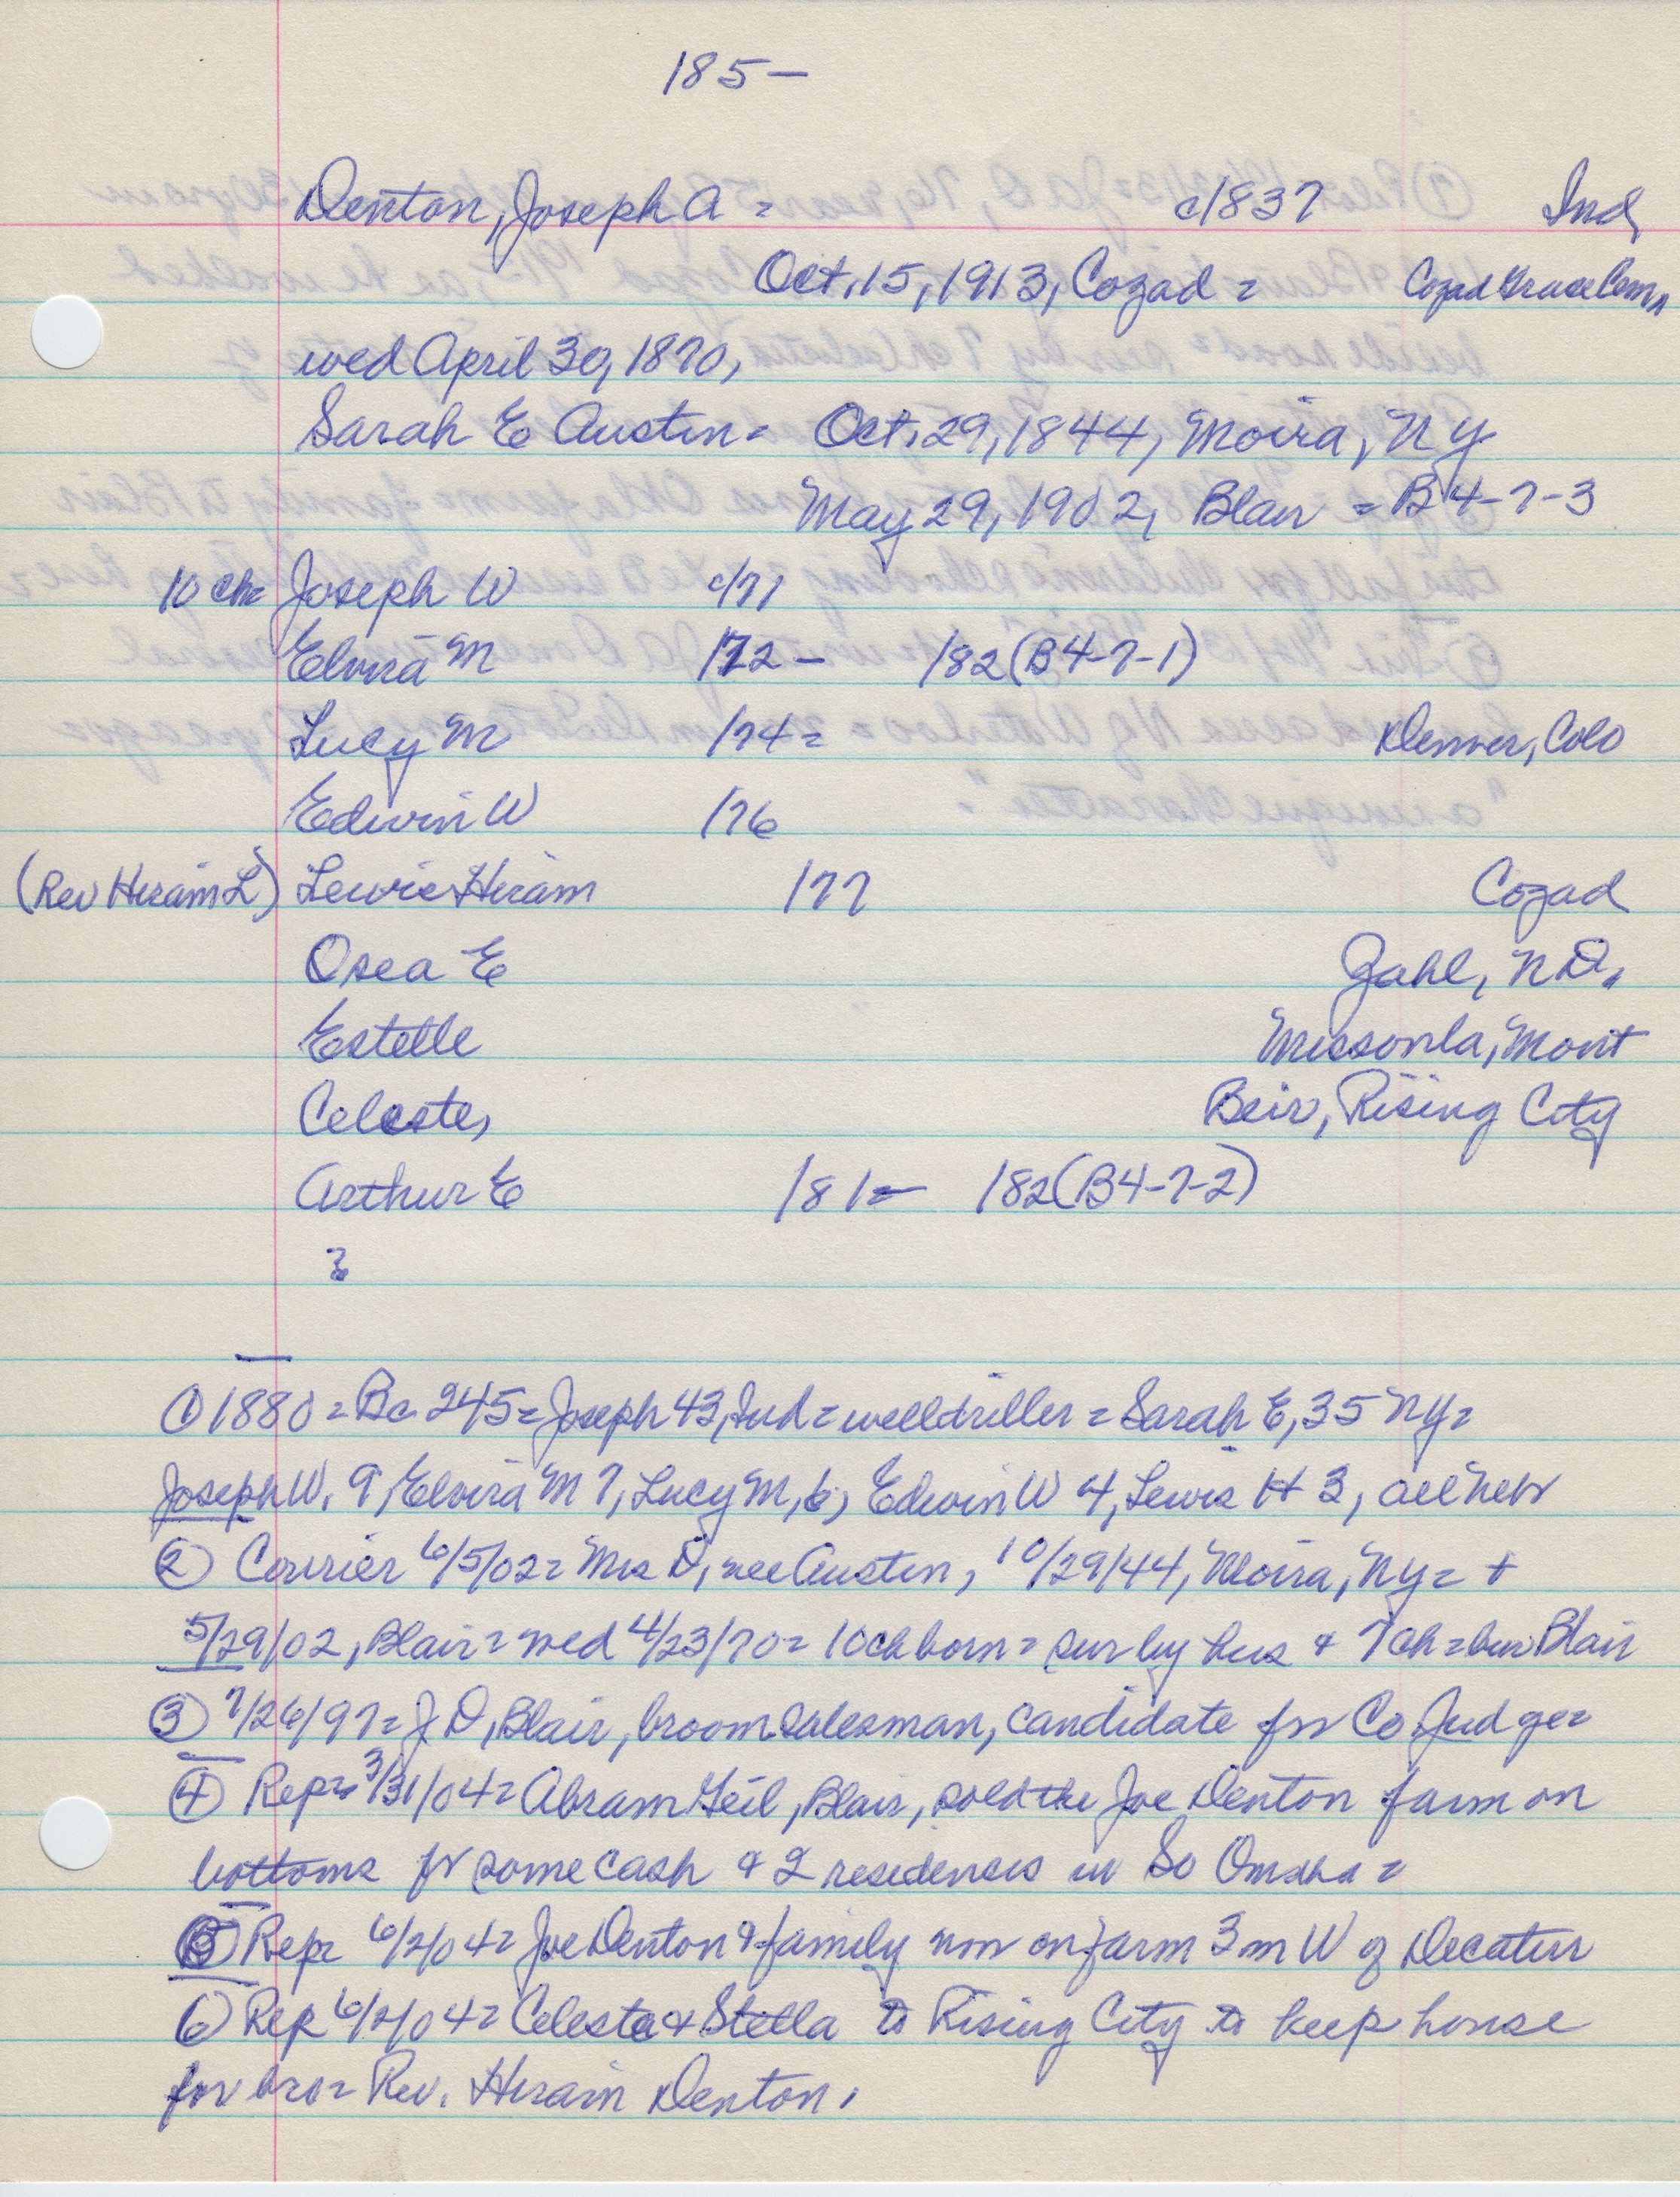 185-
Denton, Joseph A = c/1837 Ind,
Oct. 15, 1913, Cozad = Cozad Grace Cem
wed April 30, 1870,
Sarah E Austin = Oct. 29, 1844, Moira, NY
May 29, 1902, Blair = B4-7-3
10 ch= Joseph W c/71
Elvira M 172- 182 (B4-7-1)
Lucy M 174= Denver, Colo
Edwin W 176
(Rev Hiram L) Lewis Hiram 177 Cozad
Osea E Zahl, ND.
Estelle Missoula, Mont
Celeste, Beir, Rising City
Arthur E 181= 182 (B4-7-2)
?
① 1880 = Bc 245 = Joseph 43, Ind = welldriller = Sarah E, 35 NY=
Joseph W. 9, Elvira M 7, Lucy M, 6, Edwin W 4, Lewis H 3, all Nebr
② Courier 6/5/02= Mrs D, nee Austin, 10/29/44, Moira, NY= +
5/29/02, Blair= wed 4/23/70= 10 ch born= sur by hus & 7 ch = bur Blair
③ 7/26/97= J. D, Blair, broom salesman, candidate for Co Judge=
④ Rep= 3/31/04= Abram Geil, Blair, sold the Joe Denton farm on
bottoms fr some cash & 2 residences in So Omaha =
⑤ Rep= 6/2/04= Joe Denton & family now on farm 3 m W of Decatur
⑥ Rep 6/2/04= Celeste & Stella to Rising City to keep house
for bro= Rev. Hiram Denton.